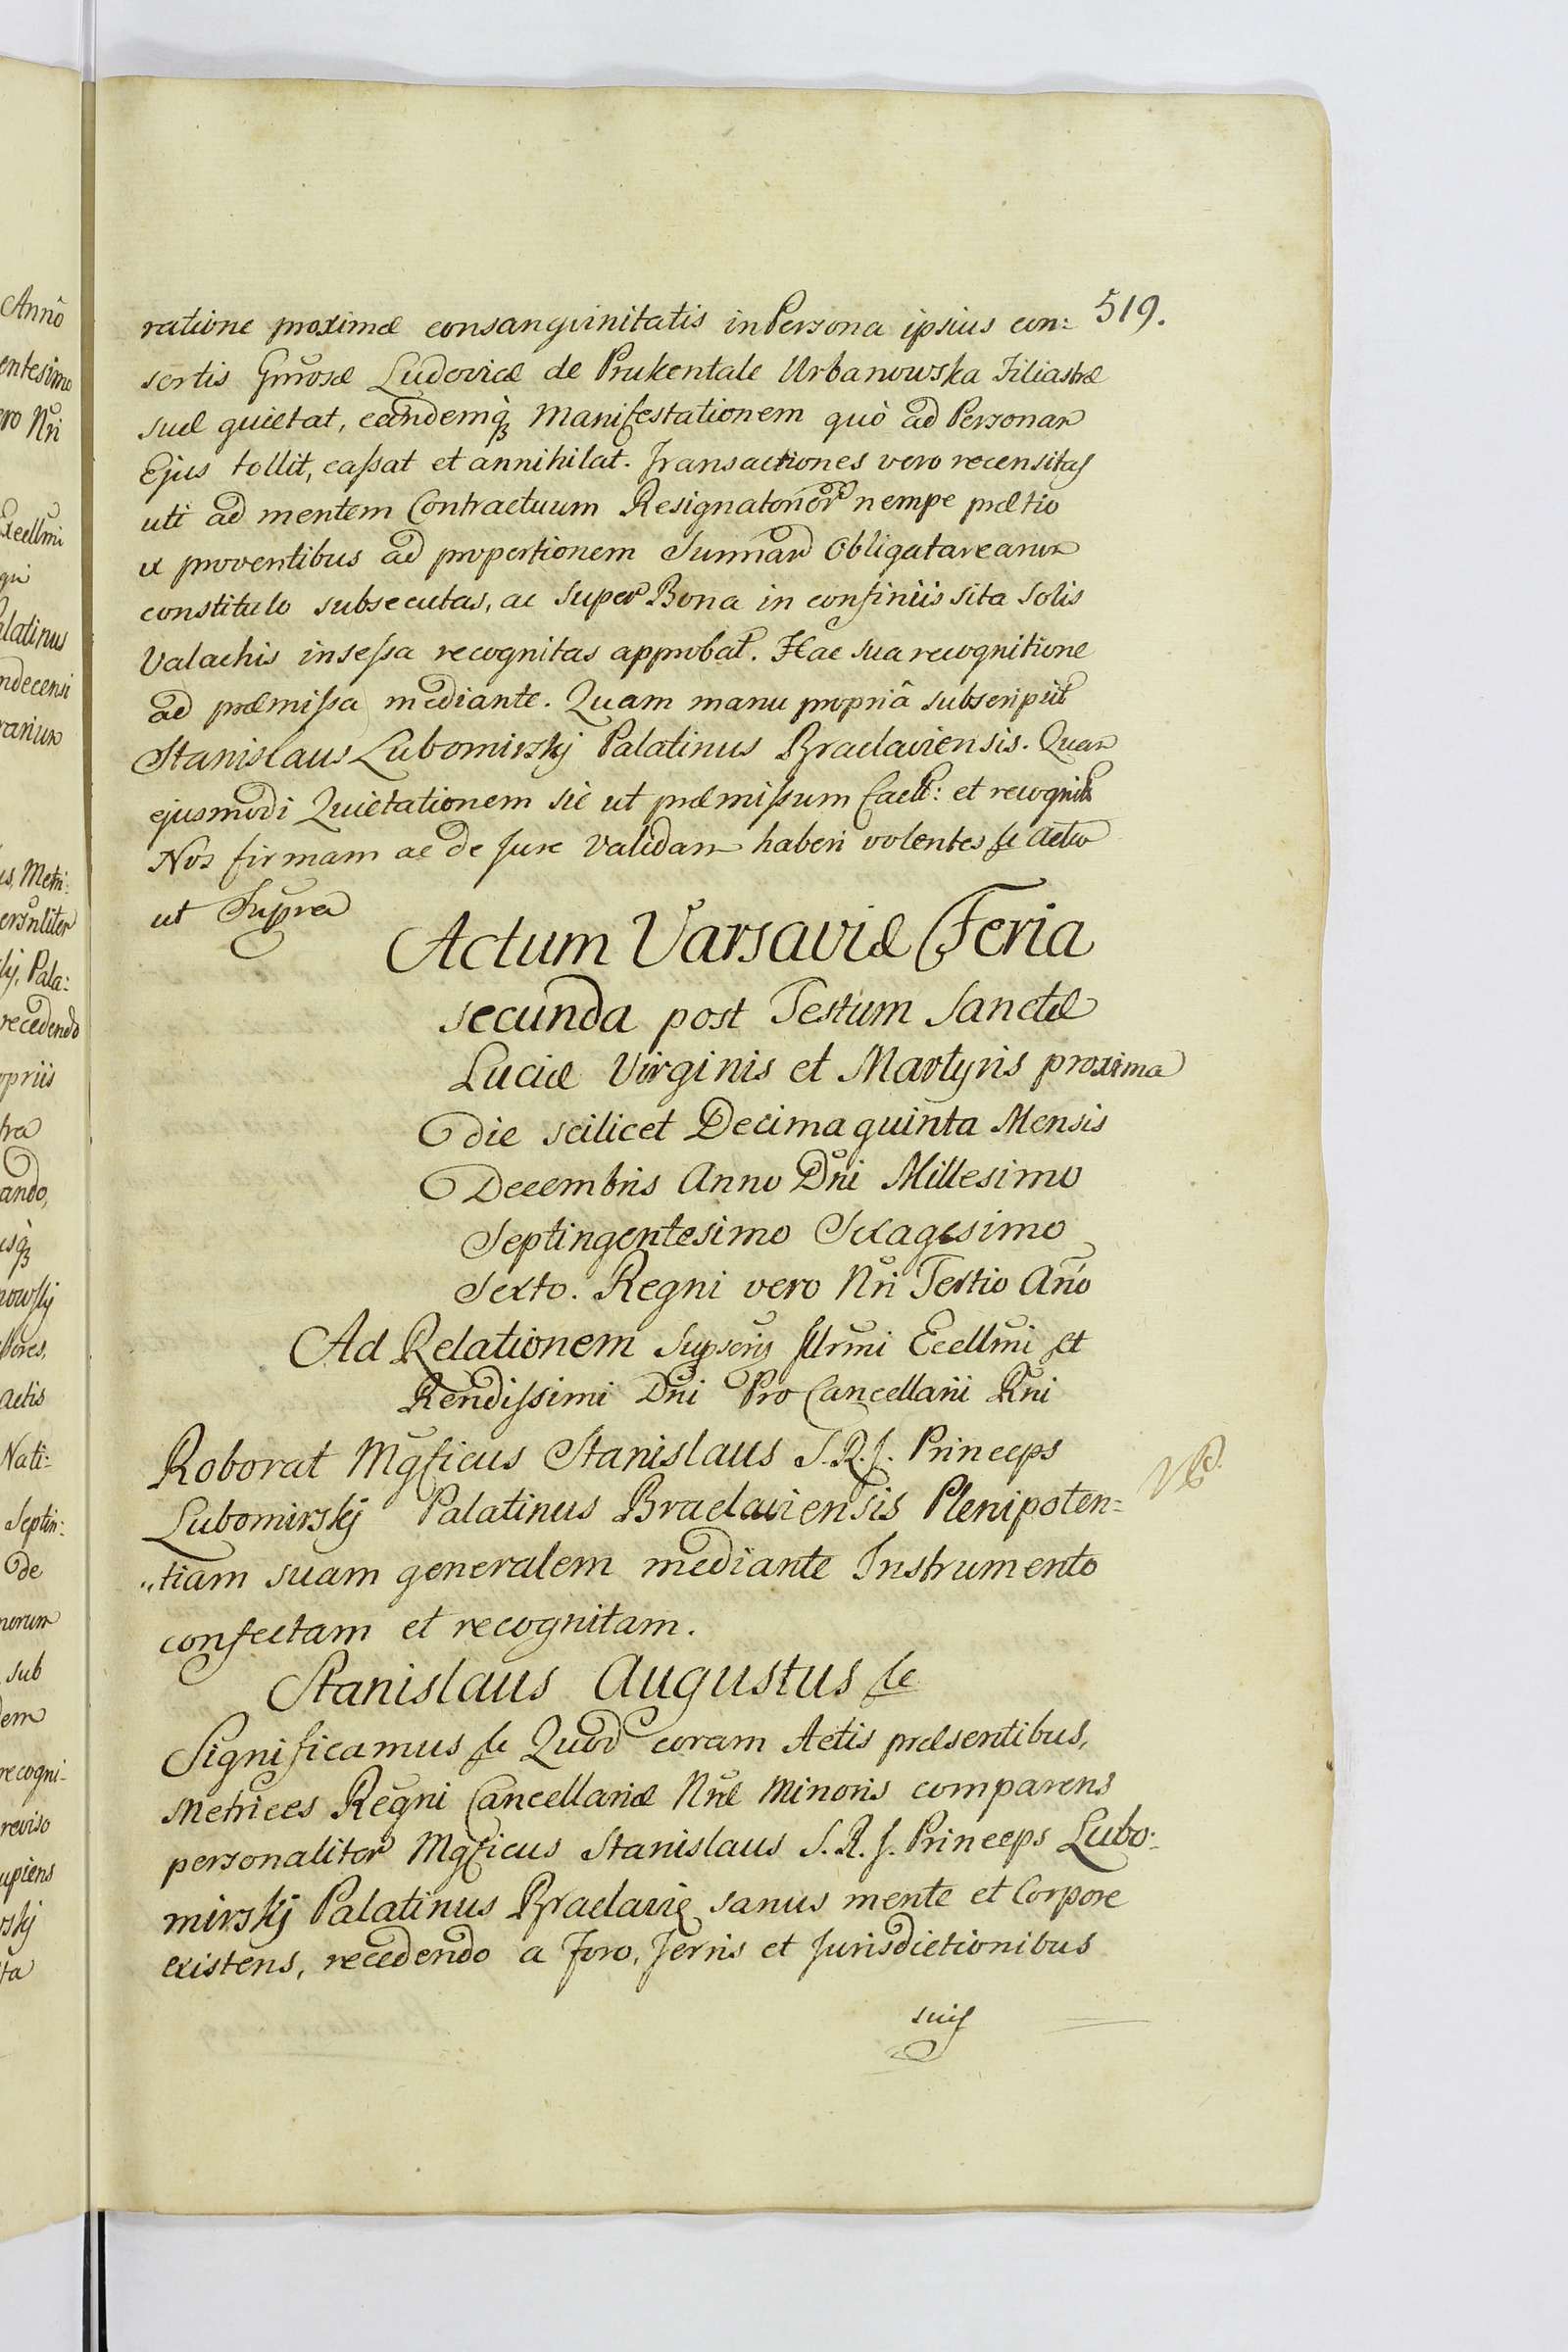 519.
ratione proximæ consangvinitatis in Persona ipsius con:
sortis Gnrosæ Ludovicæ de Prukentale Urbanowska Filiastræ
suæ quietat, eandemq́ꝫ Manifestationem quò ad Personam
Ejus tollit, caſsat et annihilat. Transactiones vero recensitas
uti ad mentem Contractuum Resignator nempe prætio
ex proventibus ad proportionem Summar Obligatarearum
constituto subsecutas, ac super Bona in confiniis sita solis
Valachis inseſsa recognitas approbat. Hac sua recognitione
ad præmiſsa mediante. Quam manu propriâ subscripsit
Stanislaus Lubomirskj Palatinus Braclaviensis. Quam
ejusmodi Quietationem sic ut præmiſsum fact: et recognit
Nos firmam ac de Jure validam haberi volentes &c Actu
ut Supra
Actum Varsaviæ Feria
secunda post Festum Sanctæ
Luciæ Virginis et Martyris proxima
die scilicet Decima quinta Mensis
Decembris Anno Dni Millesimo
Septingentesimo Sexagesimo
Sexto. Regni vero Nri Tertio Año
Ad Relationem Supscrip Illrmi Ecellmi et
Rendiſsimi Dni Pro Cancellarii Rni
Roborat Mgficus Stanislaus S. R. J. Princeps
Lubomirskj Palatinus Braclaviensis Plenipoten=
"tiam suam generalem mediante Instrumento
confectam et recognitam.
Stanislaus Augustus &c
Significamus &c Quod coram Actis præsentibus,
Metrices Regni Cancellariæ Nræ Minoris comparens
personaliter Mgficus Stanislaus S. R. J. Princeps Lubo:
mirskj Palatinus Braclavię sanus mente et Corpore
existens, recedendo a Foro, Terris et Jurisdictionibus
suis